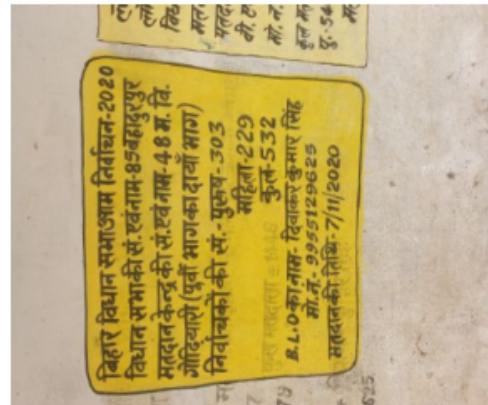 बिहार विधान सभा आम निर्वाचन-2020
विधान सभा की सं. एवं नाम-85 बहादुरपुर
मतदान केन्द्र की सं. एवं नाम-48 म. वि.
गोढ़ियारी (पूर्वी भाग का दायाँ भाग)
निर्वाचकों की सं.- पुरुष-303
महिला-229
कुल-532
B.L.O का नाम- दिवाकर कुमार सिंह
मो.नं.- 9955129625
मतदान की तिथि-7/11/2020